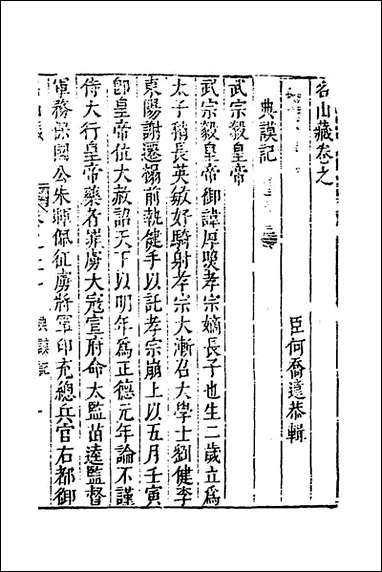 名山藏卷之
臣何喬遠恭輯
典謨記
武宗毅皇帝
武宗毅皇帝御諱厚㷖孝宗嫡長子也生二歲立爲
太子稍長英敏好騎射孝宗大漸召大學士劉健李
東陽謝遷榻前執健手以託孝宗崩上以五月壬寅
卽皇帝位大赦詔天下以明年爲正德元年論不謹
侍大行皇帝藥者罪虜大寇宣府命太監苗逵監督
軍務保國公朱暉佩征虜將軍印充總兵官右都御
典謨記
一